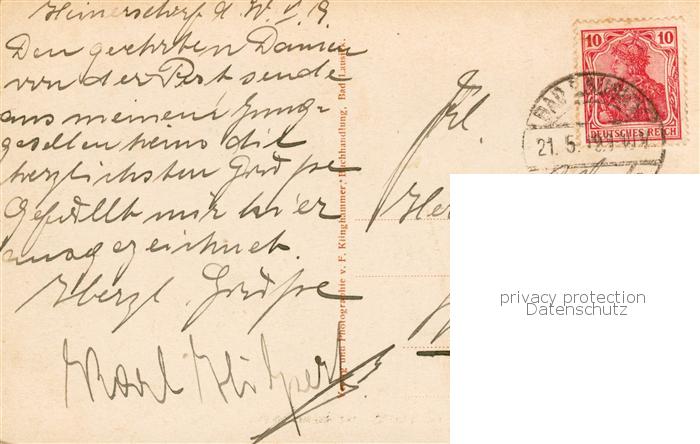 Heinersdorf d. 20. V. 19.
Den geehrten Damen
von der Post sende
aus meinem Jung-
gesellenheim die
herzlichsten Grüße
Gefällt mir hier
ausgezeichnet.
Herzl. Grüße
Karl
Verlag und Photographie v. F. Klinghammer, Buchhandlung, Bad Lausick.
10 10
DEUTSCHES REICH
BAD LAUSICK
21. 5. 19
Frl.
privacy protection
Datenschutz